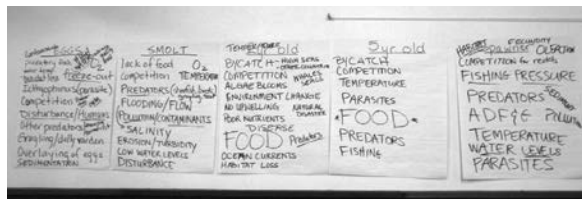 EGGS
O2
freeze-out
Ichthyophonus (parasite)
Competition
Disturbance/Humans
Other predators
Overlaying of eggs
SEDIMENTATION
SMOLT
lack of food O2
Competition TEMPERATURE
PREDATORS
FLOODING/FLOW
POLLUTION/CONTAMINANTS
SALINITY
EROSION/TURBIDITY
LOW WATER LEVELS
DISTURBANCE
yr old
TEMPERATURE
BYCATCH - HIGH SEAS
COMPETITION WHALES
ALGAE BLOOMS SEALS
ENVIRONMENT CHANGE
NO UPWELLING NATURAL
POOR NUTRIENTS DISASTER
DISEASE
FOOD Predators
OCEAN CURRENTS
HABITAT LOSS
5yr old
BYCATCH
COMPETITION
TEMPERATURE
PARASITES
FOOD
PREDATORS
FISHING
HABITAT FECUNDITY
Spawner OLFACTION
COMPETITION for redds
FISHING PRESSURE
PREDATORS
ADF&G POLLUTION
TEMPERATURE
WATER LEVELS
PARASITES